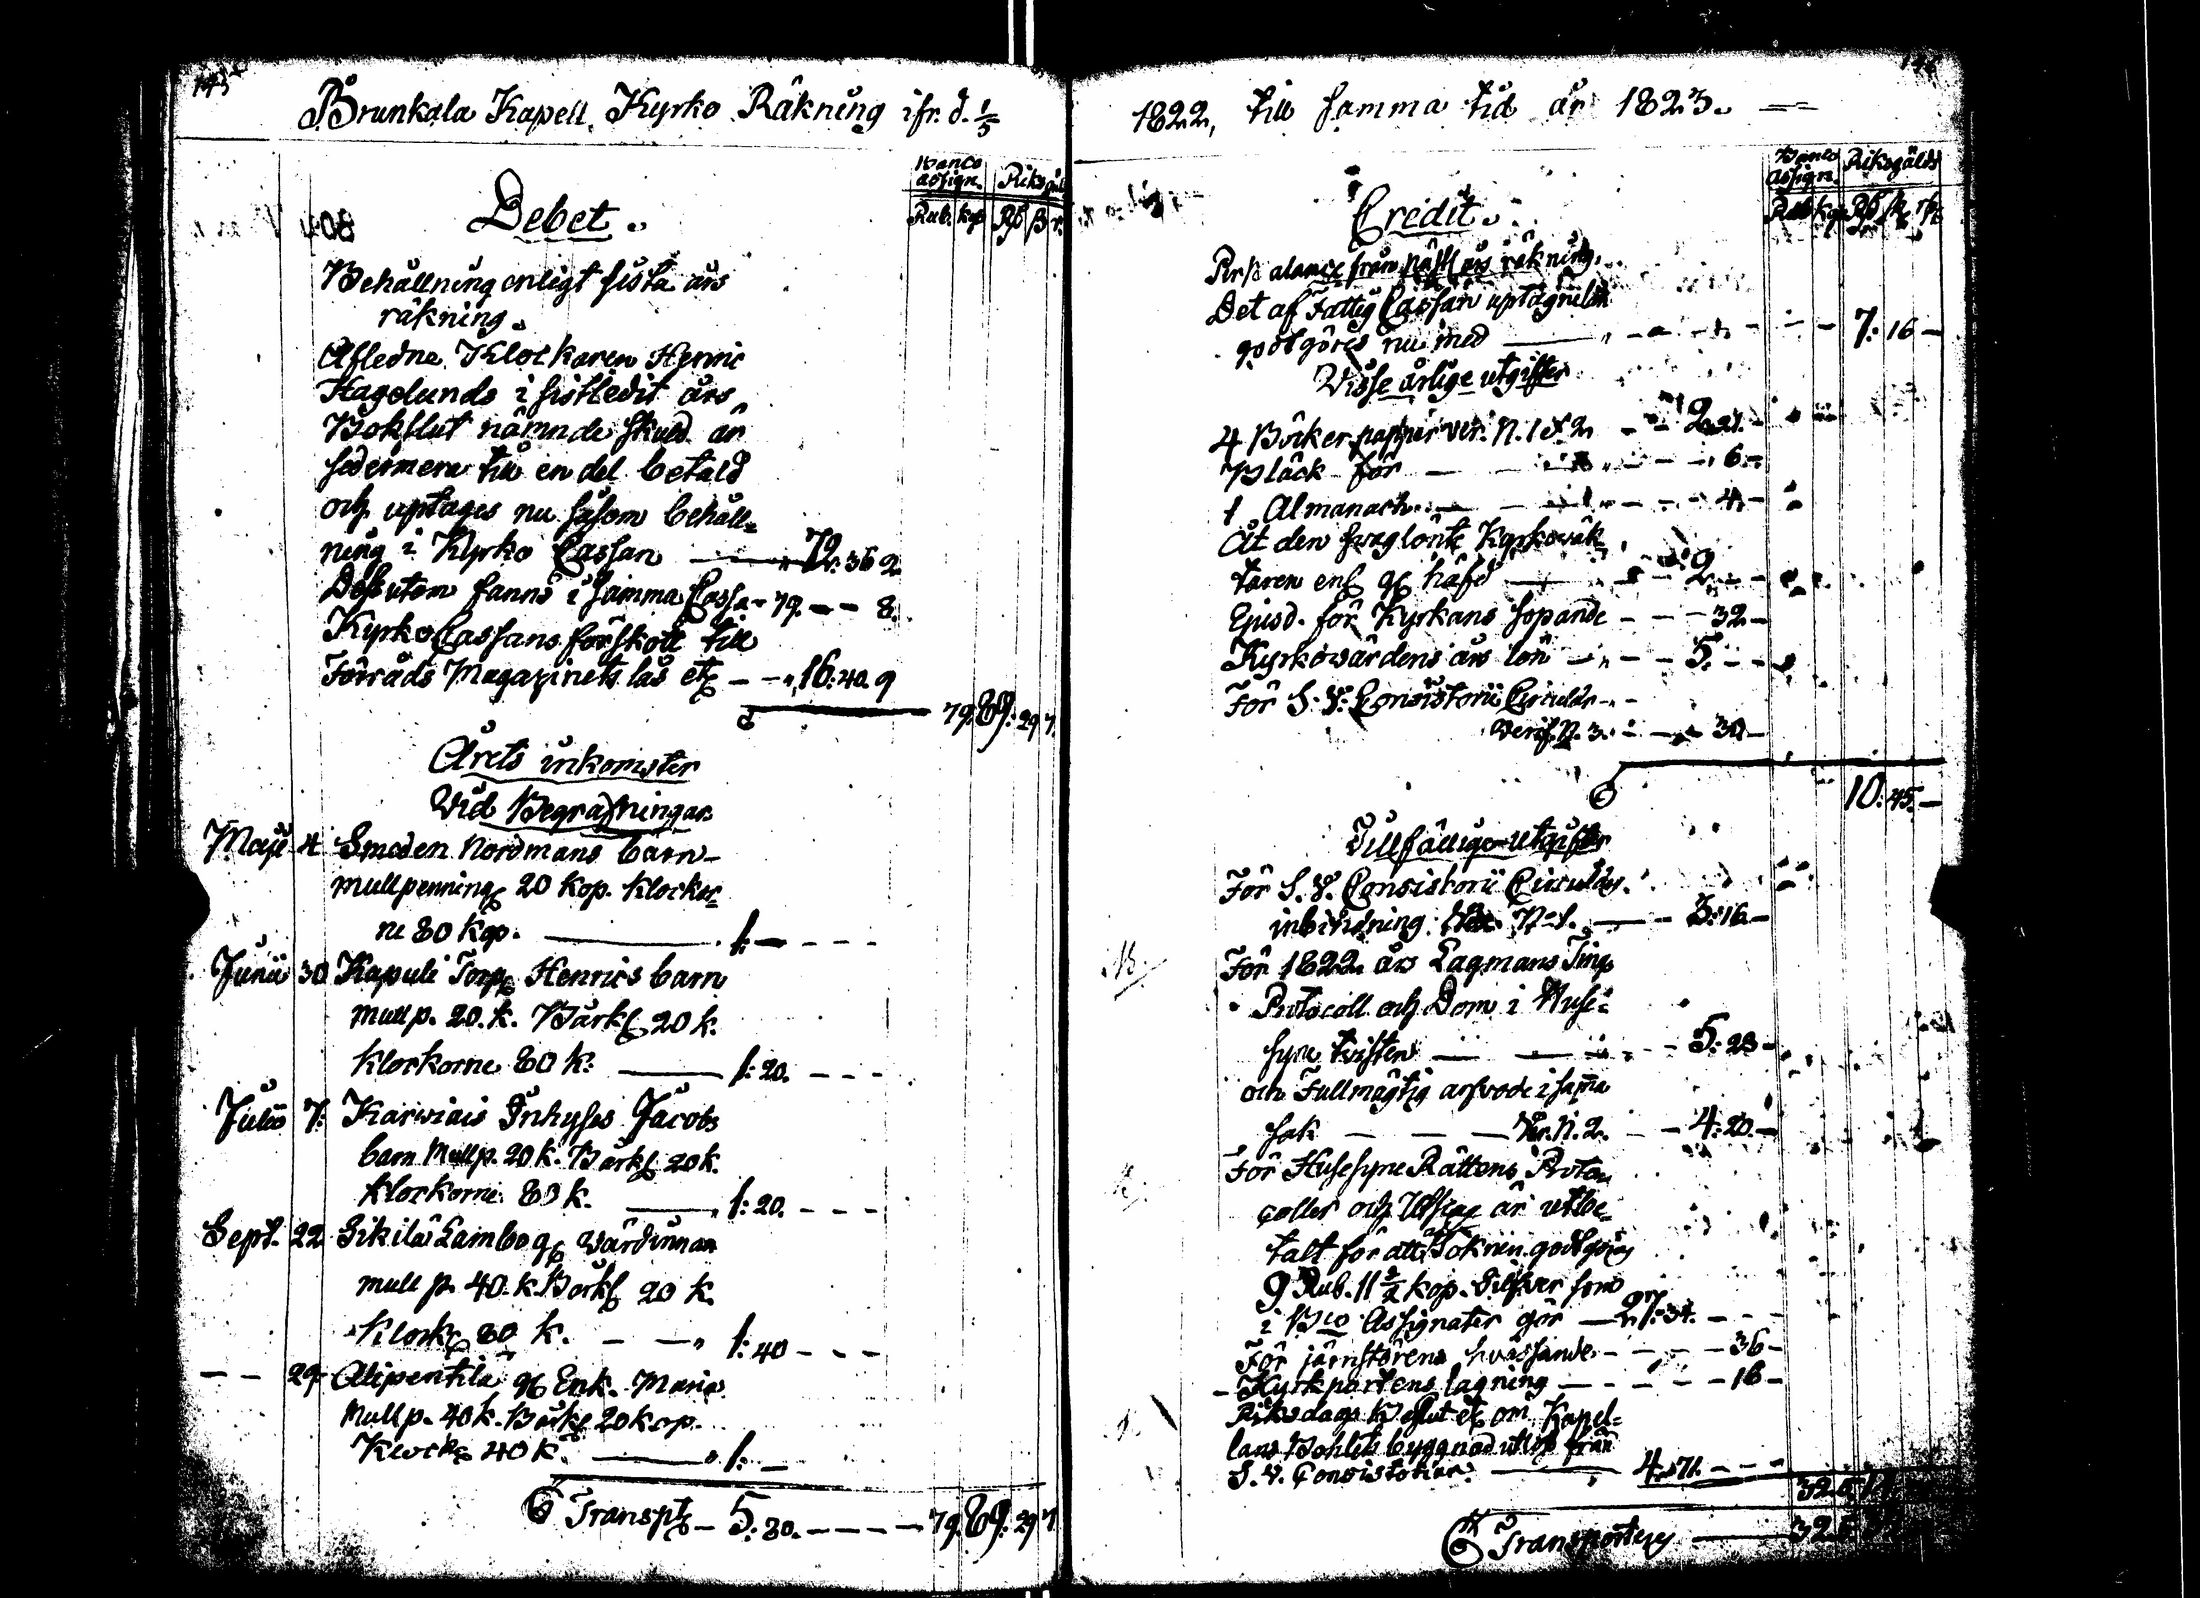 145
Brunkala Kapell Kyrko Räkning ifr. d. 1/5
Banco assign. Riksgäld
Rub. kop Rß ß r.
Debet.
Behållning enligt sista års
räkning.
Afledne Klockaren Henric
Hagelunds i sistledit års
Bokslut nämnde skuld är
sedermera till en del betald
och uptages nu såsom behåll=
ning i Kyrko Cassan — 72. 36 2
Dessutom fanns i samma Cassa - 79. — — 8.
Kyrko Cassans förskott till
Förråds Magazinets lås etc — — 16. 40. 9
79. 89. 29 7.
Årets inkomster
Vid Begrafningar
Maji 4 Smeden Nordmans barn
mullpenning 20 kop. Klockor=
ne 80 kop. — 1. — — — —
Junii 30 Kapuli Torp Henrics barn
mull p. 20. k. Bårkl 20 k.
klockorne 80 k: — 1: 20. — — —
Julii 7. Karwiais Inhyses Jacobs
barn Mull p. 20 k. Bårkl 20 k.
klockorne 80 k. — 1: 20. — — —
Sept. 22 Sikilä Lambo gl Wärdinnan
mull p. 40. k. Bårkl 20 k.
Klock 80 k. — — 1: 40 — — —
— — 29 Alipentilä gl Enk. Maria
Mull p. 40 k. Bårkl 20 kop.
Klock 40 k. — 1. —
Transpt — 5: 80. — — — — 79. 89. 29 7
1822, till samma tid år 1823. —
Banco assign. Riksgälds
Rub kop Rß
Credit.
räkning.
Det af Fattig Cassan uptagne
godtgöres nu med — 7. 16 —
Wisse årlige utgifter
4 Böcker papper ver. N. 1 & 2 — — 2. 21. —
Bläck för — — — 6. —
1 Almanach — — — 4. —
Åt den Kyrkowäk=
taren häfd — — 2. — —
Ejusd. för Kyrkans sopande — — — 32. —
Kyrkowärdens års lön — — — 5. — —
För S. V. Consistorii Circulär — —
Verif. N. 3. — — 30 —
10. 45. —
Tillfällige Utgifter
För S. V. Consistorii Circulärs
inbindning N. 1. — 3: 16. —
För 1822 års Lagmans Tings
Protocoll och Dom i Huse=
syne twisten — — — 5: 28 —
och Fullmägtig arfvode i samma
sak — — — Ver. N. 2. — — 4. 20. —
För Husesyne Rättens Proto=
coller och Utslag är utbe=
talt för
9 Rub. 11 kop. Silfver som
i Bco Assignater gör — 27. 34. — — —
För järnstörens hwässande — — — — 36 —
Kyrkportens lagning — — — — 16 —
Riksdags Beslut etc om Kapel=
lans Bohlets byggnad från
S. V. Consistorier. — 4. 71. — — —
Transporteras —